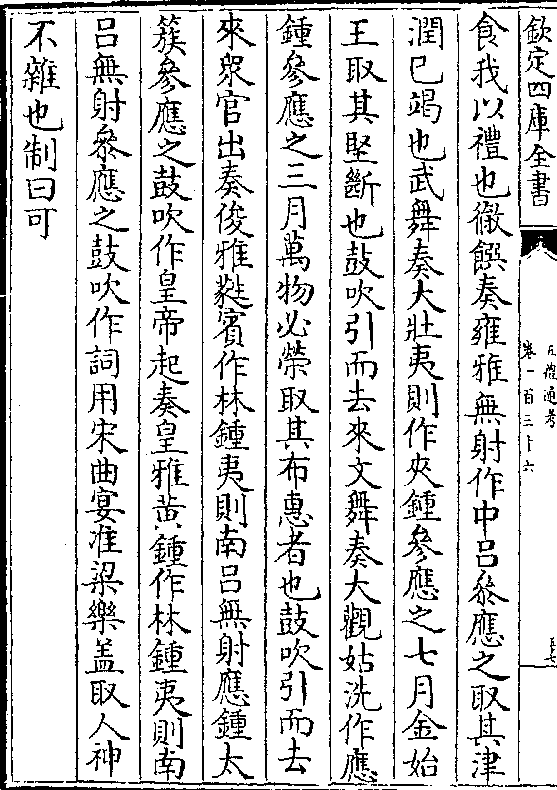 欽定四庫全書
五禮通考
卷一百三十六
食我以禮也徹饌奏雍雅無射作中呂叅應之取其津
潤已竭也武舞奏大壯夷則作夾鍾參應之七月金始
王取其堅斷也鼓吹引而去來文舞奏大觀姑洗作應
鍾參應之三月萬物必榮取其布惠者也鼓吹引而去
來眾官出奏俊雅蕤賓作林鍾夷則南呂無射應鍾太
簇參應之鼓吹作皇帝起奏皇雅黃鍾作林鍾夷則南
呂無射叅應之鼓吹作詞用宋曲宴准梁樂盖取人神
不雜也制曰可